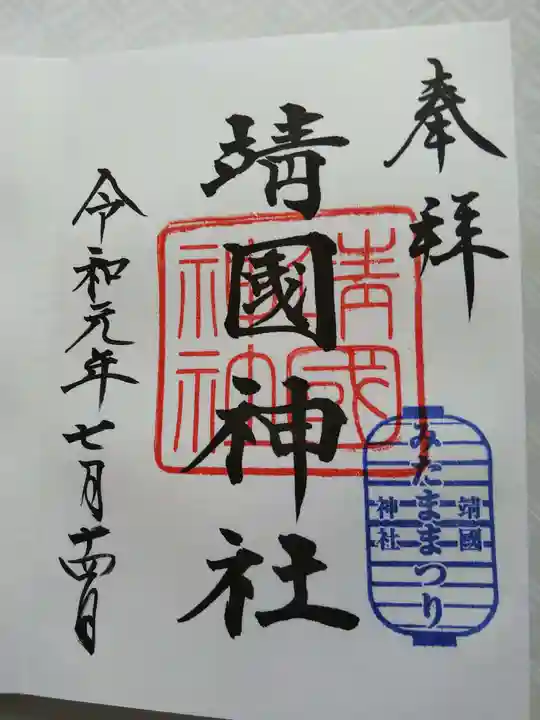 奉拝
靖國神社
靖國神社
みたままつり
靖國
神社
令和元年七月十四日